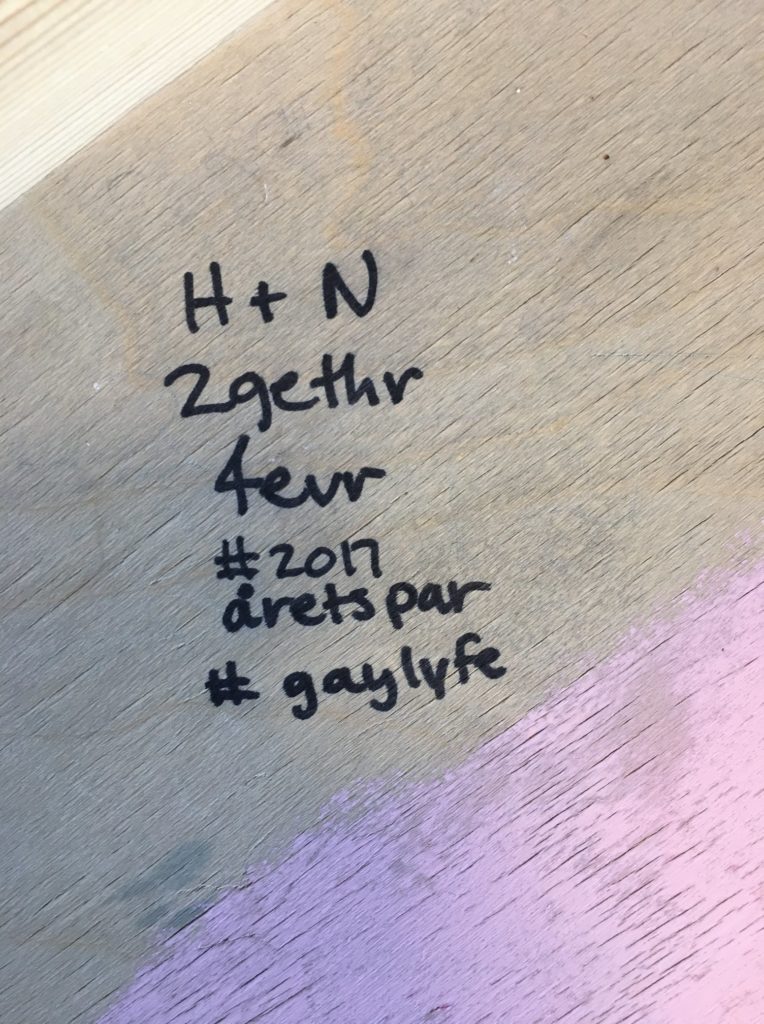 H + N
2gethr
4evr
#2017
åretspar
# gaylyfe